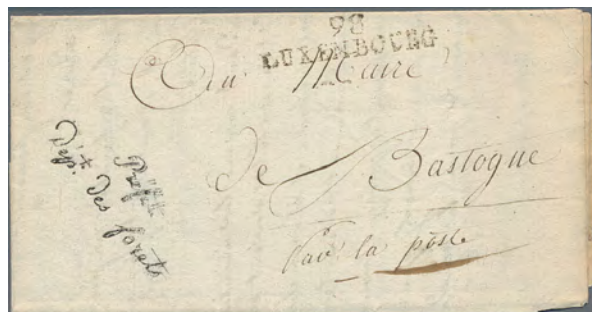 98
LUXEMBOURG
Au Maire
de Bastogne
Par la poste
Préfet
Dépt. des forets